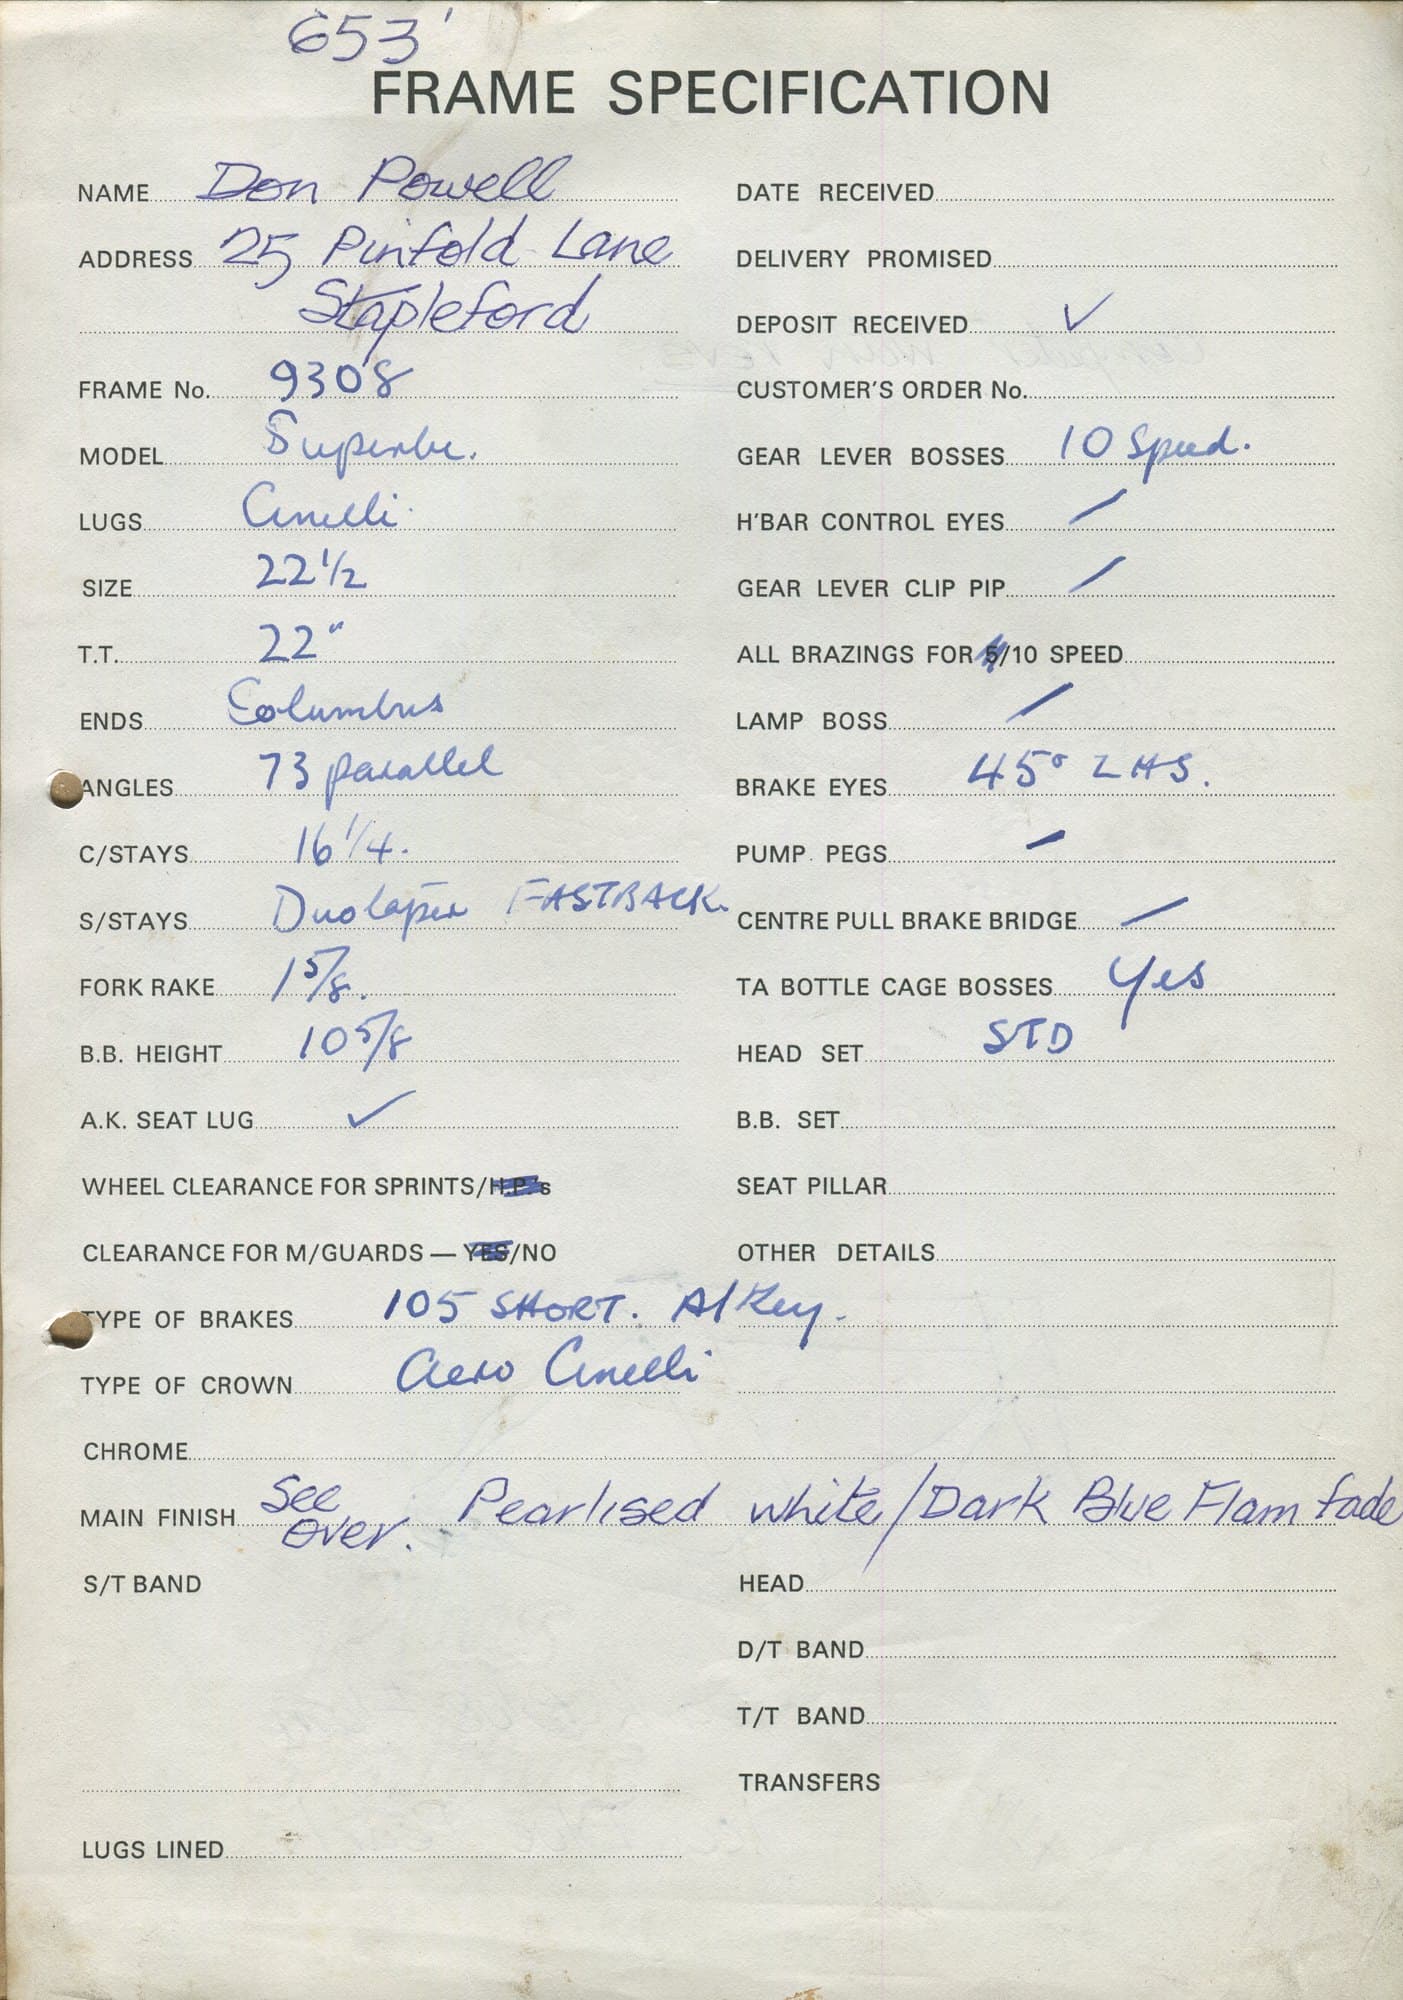 653
FRAME SPECIFICATION
NAME Don Powell
ADDRESS 25 Pinfold Lane
Stapleford
FRAME No. 9308
MODEL Superbe.
LUGS Cinelli
SIZE 22 1/2
T.T. 22"
ENDS Columbus
ANGLES 73 parallel
C/STAYS 16 1/4.
S/STAYS Duotaper FASTBACK.
FORK RAKE 1 5/8.
B.B. HEIGHT 10 5/8
A.K. SEAT LUG ✓
WHEEL CLEARANCE FOR SPRINTS/H.P.'s
CLEARANCE FOR M/GUARDS — YES/NO
TYPE OF BRAKES 105 SHORT. Al Key.
TYPE OF CROWN Aero Cinelli
CHROME
MAIN FINISH See over. Pearlised white/Dark Blue Flam fade
S/T BAND
LUGS LINED
DATE RECEIVED
DELIVERY PROMISED
DEPOSIT RECEIVED ✓
CUSTOMER'S ORDER No.
GEAR LEVER BOSSES 10 Speed.
H'BAR CONTROL EYES /
GEAR LEVER CLIP PIP /
ALL BRAZINGS FOR 5/10 SPEED
LAMP BOSS /
BRAKE EYES 45° LHS.
PUMP PEGS /
CENTRE PULL BRAKE BRIDGE /
TA BOTTLE CAGE BOSSES Yes
HEAD SET STD
B.B. SET
SEAT PILLAR
OTHER DETAILS
HEAD
D/T BAND
T/T BAND
TRANSFERS